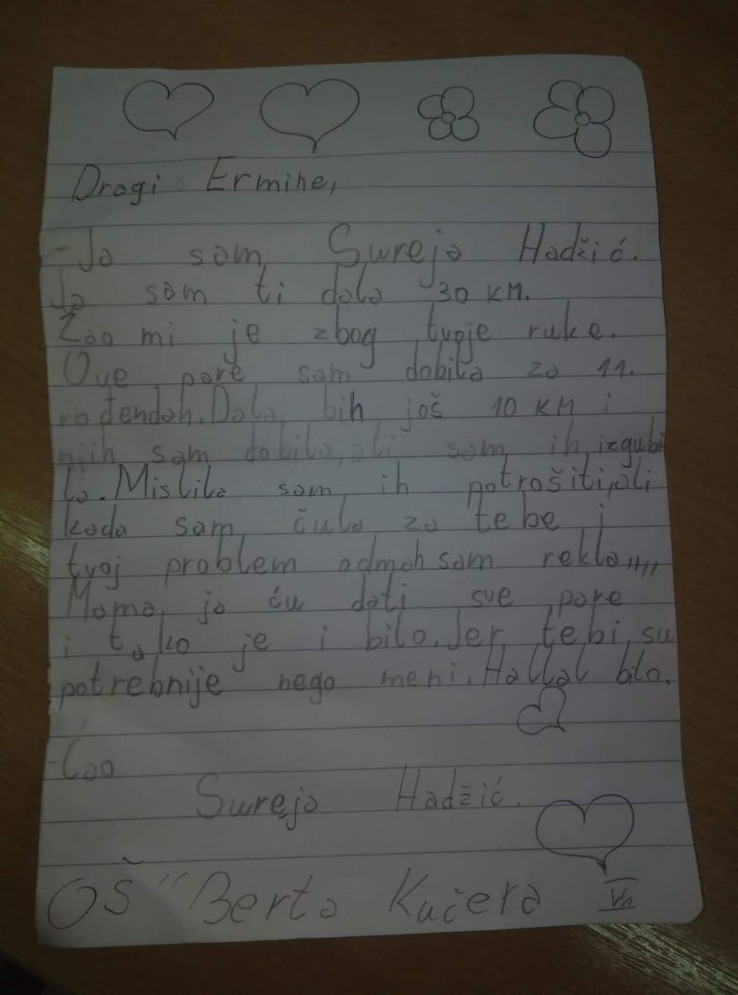 Dragi Ermine,
-Ja sam Sureja Hadžić.
Ja sam ti dala 30 KM.
Žao mi je zbog tvoje ruke.
Ove pare sam dobila za 11.
rođendah. Dala bih još 10 KM i
njih sam dobila, ali sam ih izgubi
la. Mislila sam ih potrošiti, ali
kada sam čula za tebe i
tvoj problem odmah sam rekla,,,,
Mama, ja ću dati sve pare
i tako je i bilo. Jer tebi su
potrebnije nego meni. Hallal bilo.
-Cao
Sureja Hadžić.
OŠ "Berta Kučera V1